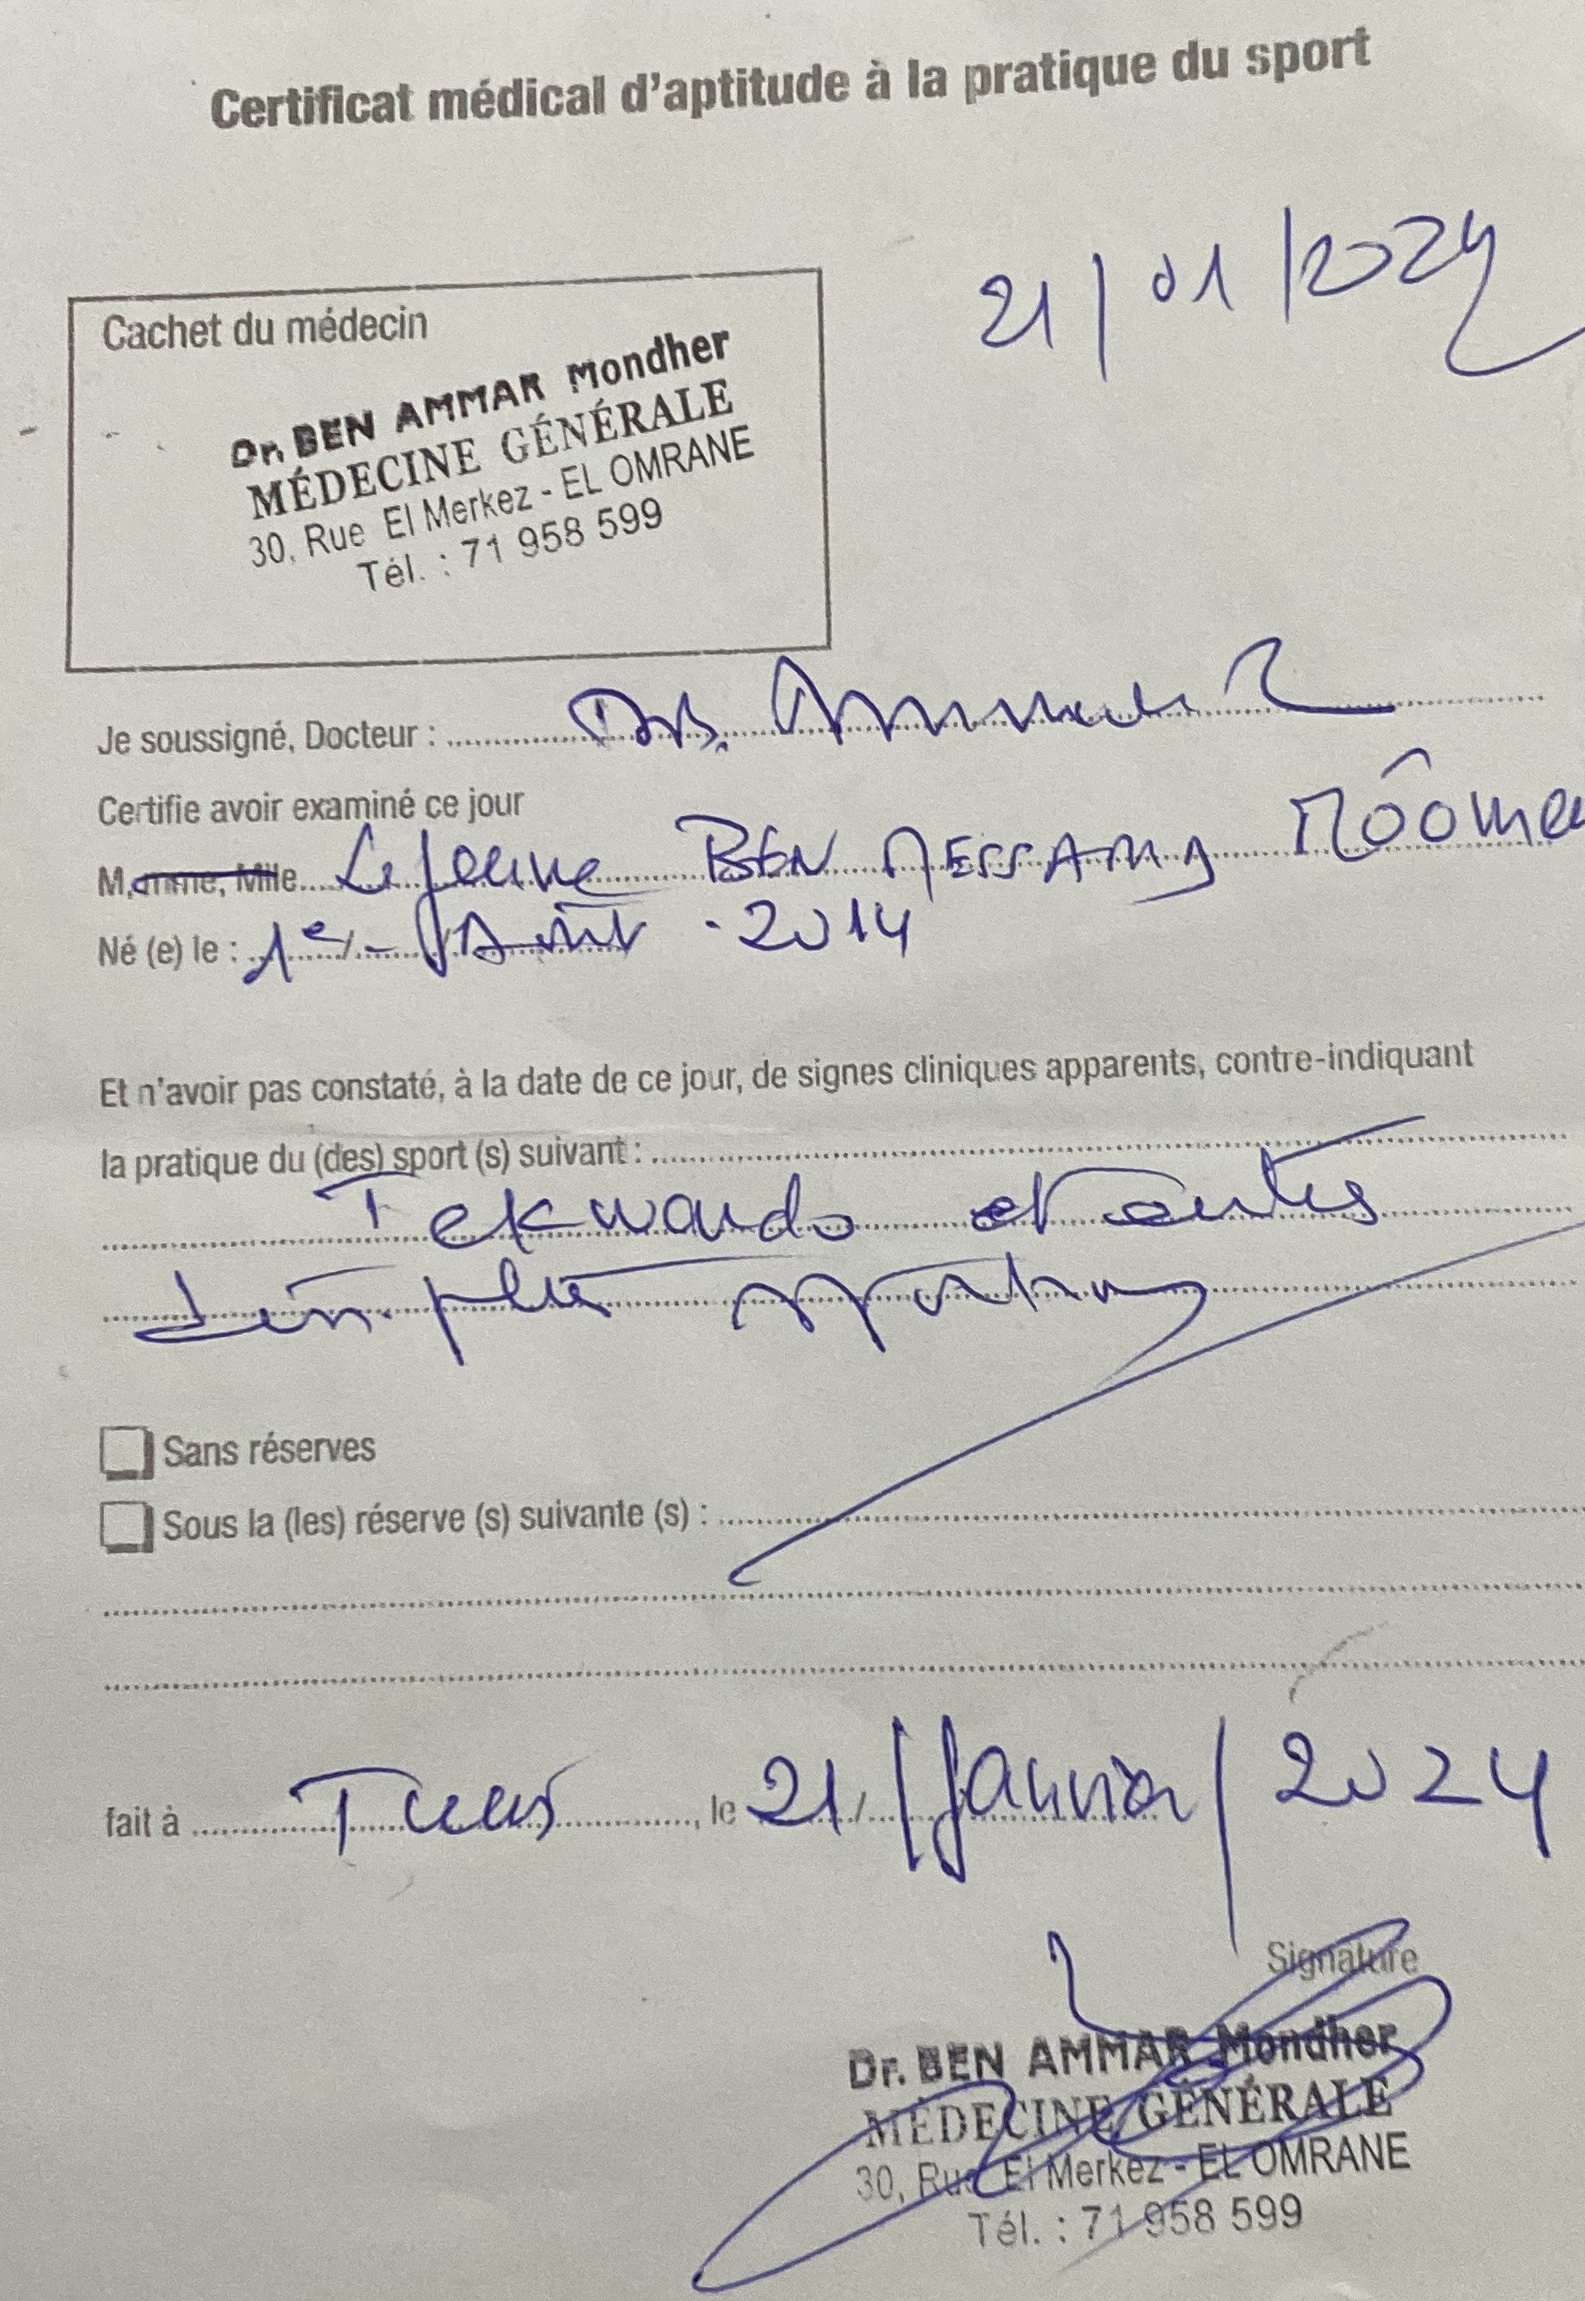 Certificat médical d'aptitude à la pratique du sport
21/01/2024
Cachet du médecin
Dr. BEN AMMAR Mondher
MÉDECINE GÉNÉRALE
30, Rue El Merkez - EL OMRANE
Tél. : 71 958 599
Je soussigné, Docteur :
Certifie avoir examiné ce jour
M, mme, Mlle Le jeune BEN
Né (e) le : 1er Août 2014
Et n'avoir pas constaté, à la date de ce jour, de signes cliniques apparents, contre-indiquant
la pratique du (des) sport (s) suivant :
Tekwando et
Sans réserves
Sous la (les) réserve (s) suivante (s) :
fait à Tunis, le 21/Janvier/2024
Signature
Dr. BEN AMMAR Mondher
MÉDECINE GÉNÉRALE
30, Rue El Merkez - EL OMRANE
Tél. : 71 958 599